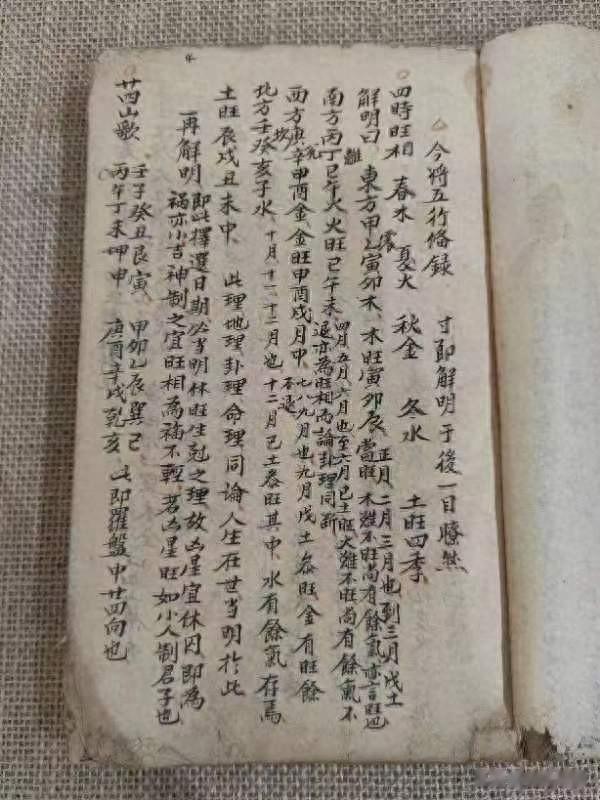 今將五行俻録　寸即解明于後一目瞭然
四時旺相　春木　夏火　秋金　冬水　土旺四季
震
解明曰　東方甲乙寅卯木、木旺寅卯辰、當旺　正月二月三月也到三月戊土
木雖不旺尚有餘氣亦言旺也
離
南方丙丁巳午火火旺巳午未　四月五月六月也至六月己土旺火雖不旺尚有餘氣不
退亦為旺相而論卦理同斷
兌
西方庚辛申酉金、金旺申酉戌月中、七八九月也九月戊土忝旺、金有旺餘
不退
坎
北方壬癸亥子水、十月十一十二月也十二月己土忝旺其中、水有餘氣存焉
土旺辰戌丑未中、此理地理卦理命理同論人生在世当明於此
再解明　即此擇選日期必当明林旺生剋之理故凶星宜休囚即為
禍亦小吉神制之宜旺相為福不輕、若凶星旺如小人制君子也
廿四山歌　壬子癸丑艮寅、甲卯乙辰巽巳
丙午丁未坤申、庚酉辛戌乾亥　此即羅盤中廿四向也